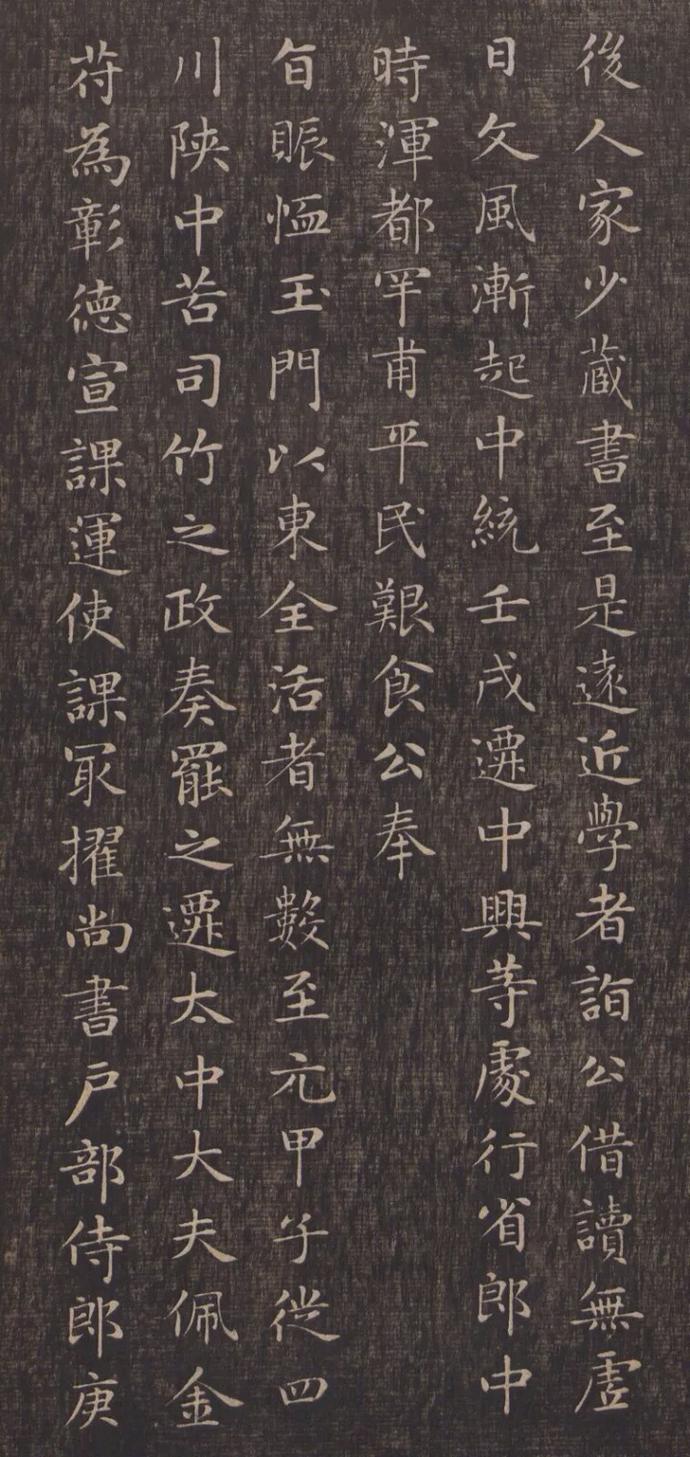 後人家少蔵書至是遠近學者詣公借讀無虛
日文風漸起中統壬戌選中興等處行省郎中
時渾都罕甫平民艱食公奉
旨賑恤玉門以東全活者無數至元甲子從四
川陝中苦司竹之政奏罷之選太中大夫佩金
符為彰德宣課運使課冣擢尚書戶部侍郎庚